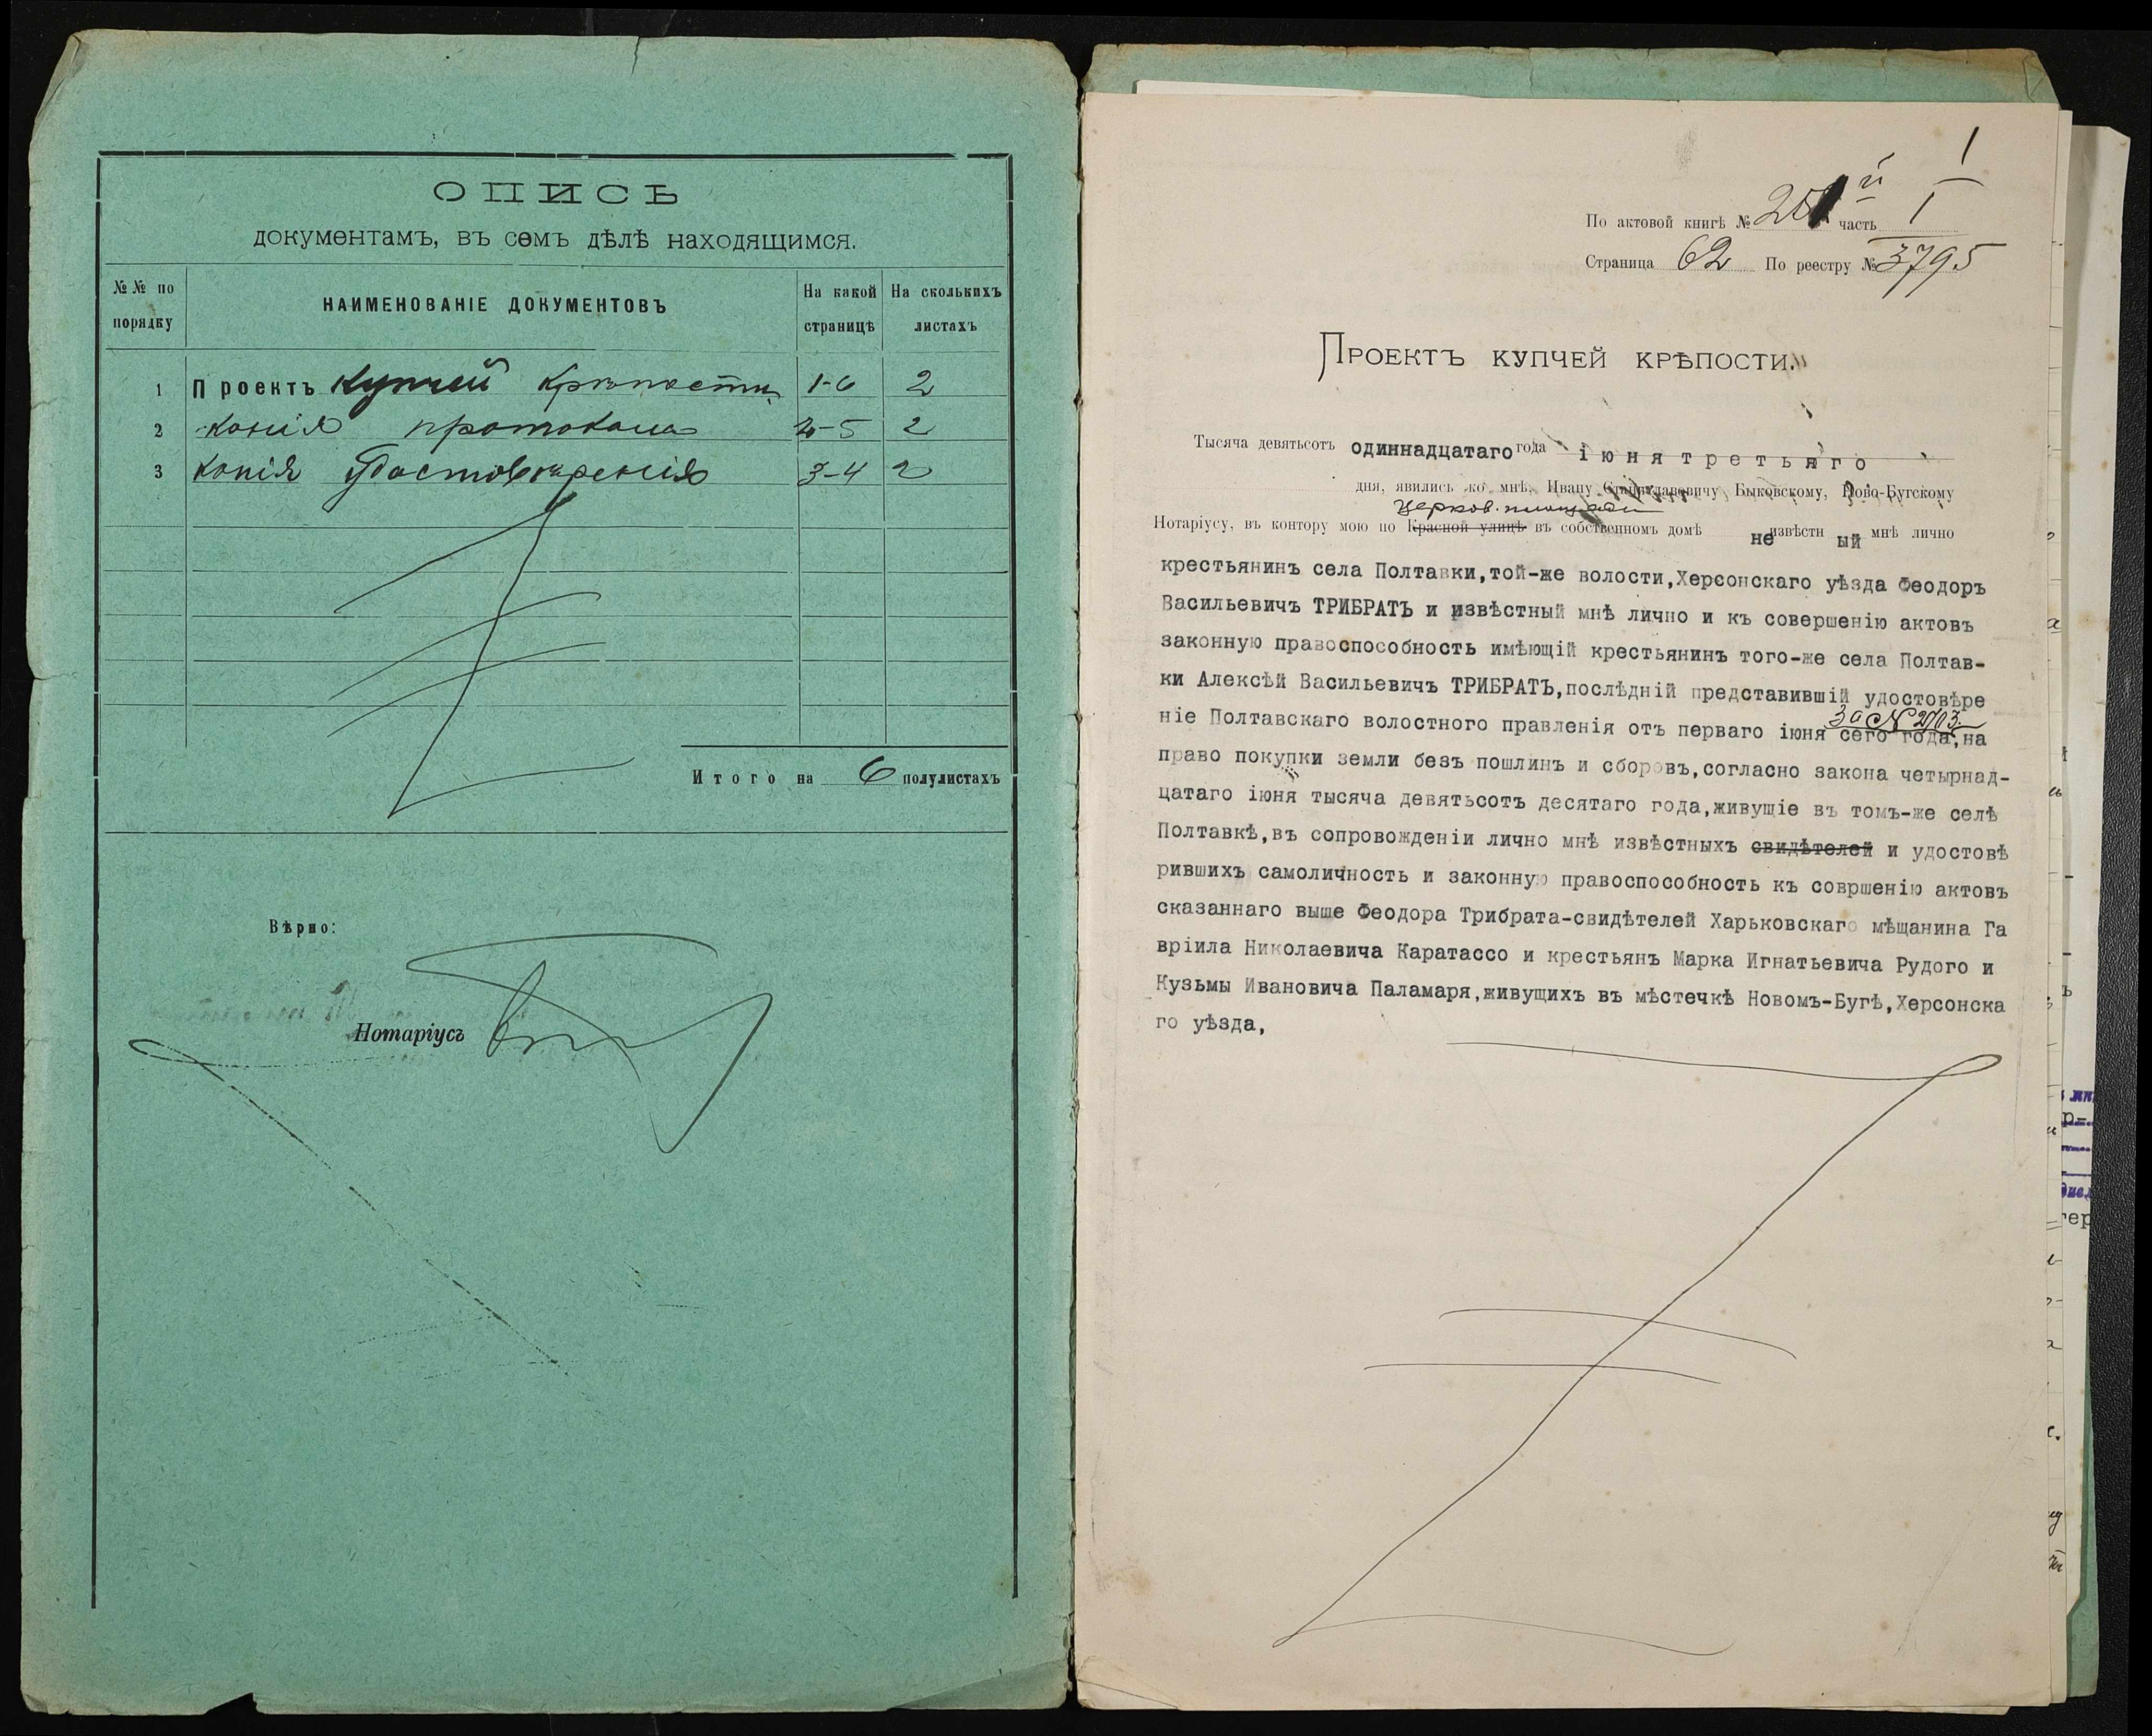 ОПИСЬ
документамъ, въ семъ дѣлѣ находящимся.
№№ по порядку
НАИМЕНОВАНІЕ ДОКУМЕНТОВЪ
На какой страницѣ
На сколькихъ листахъ
1 Проектъ купчей крѣпости 1-6 2
2 копія протокола 2-5 2
3 копія удостовѣренія 3-4 2
Итого на 6 полулистахъ
Вѣрно:
Нотаріусъ
1
По актовой книгѣ № часть I
Страница 62 По реестру № 3795
Проектъ купчей крѣпости.
Тысяча девятьсотъ одиннадцатаго года іюня третьяго
дня, явились ко мнѣ, Ивану Станиславовичу Быковскому, Ново-Бугскому
церков. площади
Нотаріусу, въ контору мою по Красной улицѣ въ собственномъ домѣ неизвѣстный мнѣ лично
крестьянинъ села Полтавки,той-же волости,Херсонскаго уѣзда Феодоръ
Васильевичъ ТРИБРАТЪ и извѣстный мнѣ лично и къ совершенію актовъ
законную правоспособность имѣющій крестьянинъ того-же села Полтав-
ки Алексѣй Васильевичъ ТРИБРАТЪ,послѣдній представившій удостовѣре
за №
ніе Полтавскаго волостного правленія отъ перваго іюня сего года,на
право покупки земли безъ пошлинъ и сборовъ,согласно закона четырнад-
цатаго іюня тысяча девятьсотъ десятаго года,живущіе въ томъ-же селѣ
Полтавкѣ,въ сопровожденіи лично мнѣ извѣстныхъ свидѣтелей и удостовѣ
рившихъ самоличность и законную правоспособность къ совршенію актовъ
сказаннаго выше Феодора Трибрата-свидѣтелей Харьковскаго мѣщанина Га
вріила Николаевича Каратассо и крестьянъ Марка Игнатьевича Рудого и
Кузьмы Ивановича Паламаря,живущихъ въ мѣстечкѣ Новомъ-Бугѣ,Херсонска
го уѣзда,